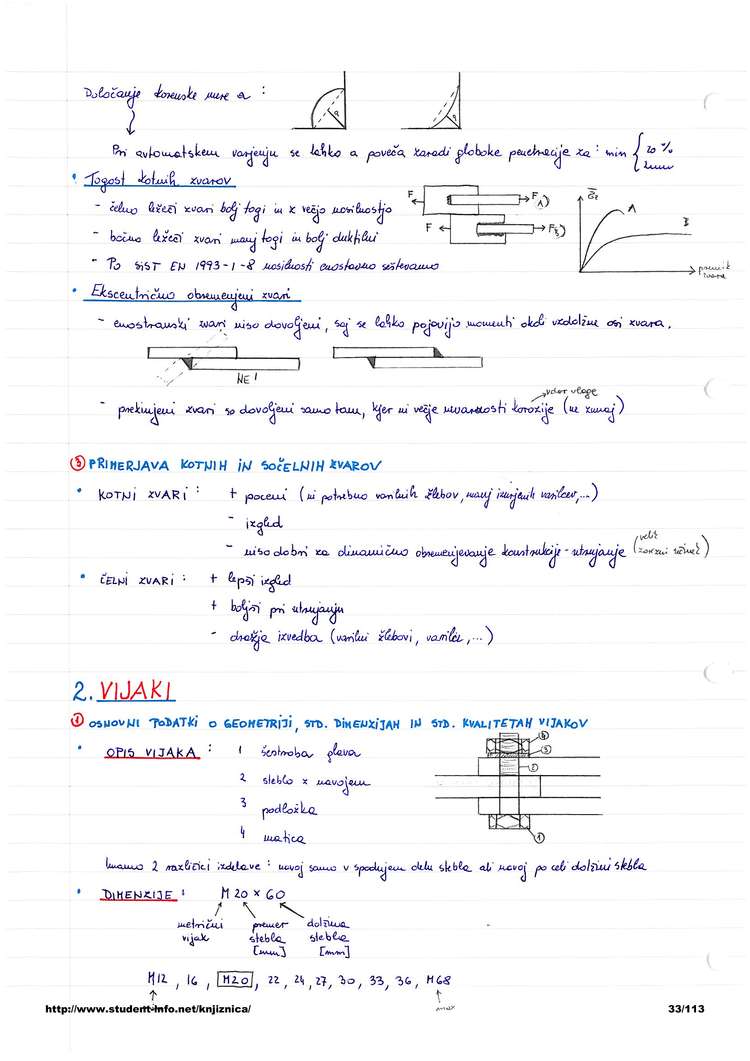 Določanje korenske mere a :
a
a
Pri avtomatskem varjenju se lahko a poveča zaradi globoke penetracije za : min { 20 %
2mm
• Togost kotnih zvarov
- čelno ležeči zvari bolj togi in z večjo nosilnostjo
- bočno ležeči zvari manj togi in bolj duktilni
- Po SIST EN 1993-1-8 nosilnosti enostavno seštevamo
F
F A)
F
F B)
A
B
pomik
zvara
• Ekscentrično obremenjeni zvari
- enostranski zvari niso dovoljeni, saj se lahko pojavijo momenti okoli vzdolžne osi zvara.
NE !
vdor vlage
- prekinjeni zvari so dovoljeni samo tam, kjer ni večje nevarnosti korozije (ne zunaj)
③ PRIMERJAVA KOTNIH IN SOČELNIH ZVAROV
• KOTNI ZVARI : + poceni (ni potrebno varilnih žlebov, manj izurjenih varilcev,...)
- izgled
- niso dobri za dinamično obremenjevanje konstrukcije - utrujanje (velik zarezni učinek)
• ČELNI ZVARI : + lepši izgled
+ boljši pri utrujanju
- dražja izvedba (varilni žlebovi, varilci,...)
2. VIJAKI
① OSNOVNI PODATKI O GEOMETRIJI, STD. DIMENZIJAH IN STD. KVALITETAH VIJAKOV
• OPIS VIJAKA : 1 šestroba glava
2 steblo z navojem
3 podložka
4 matica
④
③
②
①
Imamo 2 različici izdelave : navoj samo v spodnjem delu stebla ali navoj po celi dolžini stebla
• DIMENZIJE : M 20 x 60
metrični premer dolžina
vijak stebla stebla
[mm] [mm]
M12 , 16 , M20 , 22 , 24 , 27 , 30 , 33 , 36 , M68
max
http://www.student-info.net/knjiznica/
33/113